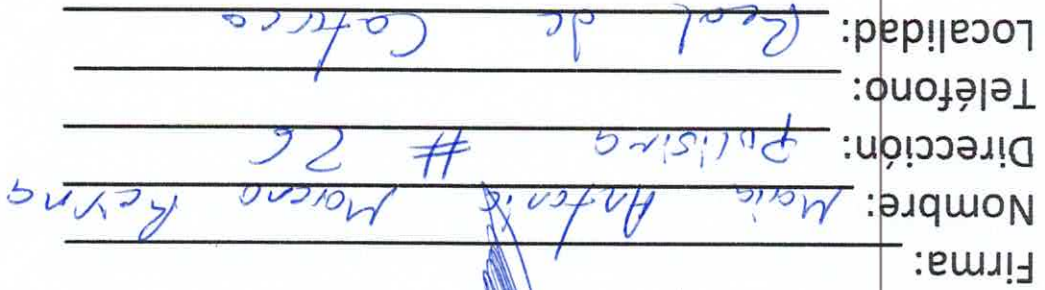 Firma:
Nombre: Maria Antonia Moreno Reyna
Dirección: # 26
Teléfono:
Localidad: Real de Catorce